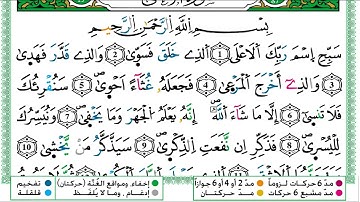 بِسْمِ اللَّهِ الرَّحْمَٰنِ الرَّحِيمِ
سَبِّحِ اسْمَ رَبِّكَ الْأَعْلَى 1 الَّذِي خَلَقَ فَسَوَّىٰ 2 وَالَّذِي قَدَّرَ فَهَدَىٰ
3 وَالَّذِي أَخْرَجَ الْمَرْعَىٰ 4 فَجَعَلَهُ غُثَاءً أَحْوَىٰ 5 سَنُقْرِئُكَ
فَلَا تَنسَىٰ 6 إِلَّا مَا شَاءَ اللَّهُ إِنَّهُ يَعْلَمُ الْجَهْرَ وَمَا يَخْفَىٰ 7 وَنُيَسِّرُكَ
لِلْيُسْرَىٰ 8 فَذَكِّرْ إِن نَّفَعَتِ الذِّكْرَىٰ 9 سَيَذَّكَّرُ مَن يَخْشَىٰ 10
مدّ 6 حركات لزوماً مدّ 2 أو 4 أو 6 جوازاً إخفاء، ومواقع الغُنَّة (حركتان) تفخيم
مدّ مشبع 6 حركات مدّ حركتان إدغام، وما لا يُلفَظ قلقلة